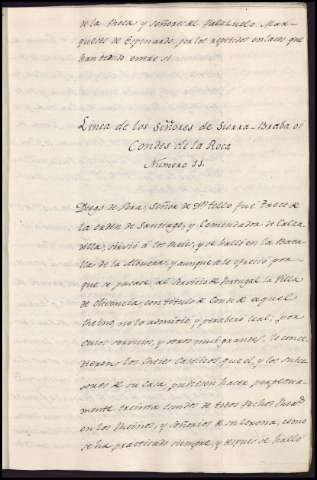 de la Roca y Señores del Palazuelo. Mar-
queses de Espinardo, por los repetidos enlaces que
han tenido entre si
Linea de los Señores de Sierra-Braba oi
Condes de la Roca
Número 11.
Diego de Vera, Señor de Dn. Tello fue Trece de
la orden de Santiago, y Comendador de Calza
dilla, sirvió á los Reies, y se halló en la Bata
lla de la Albuera, y aunque se le ofreció por
que se pasara al servicio de Portugal la Villa
de Olivencia, con titulo de Conde de aquel
Reino, no lo admitió, y por
cuios servicios, y otros mui grandes, le conce
dieron los Reies Catolicos, que el, y los subce
sores de su casa, pudiesen hacer perpetua
mente treinta de todos Pechos
en los Reinos, y Señorios de su Corona, como
se ha practicado siempre, y despues se halló